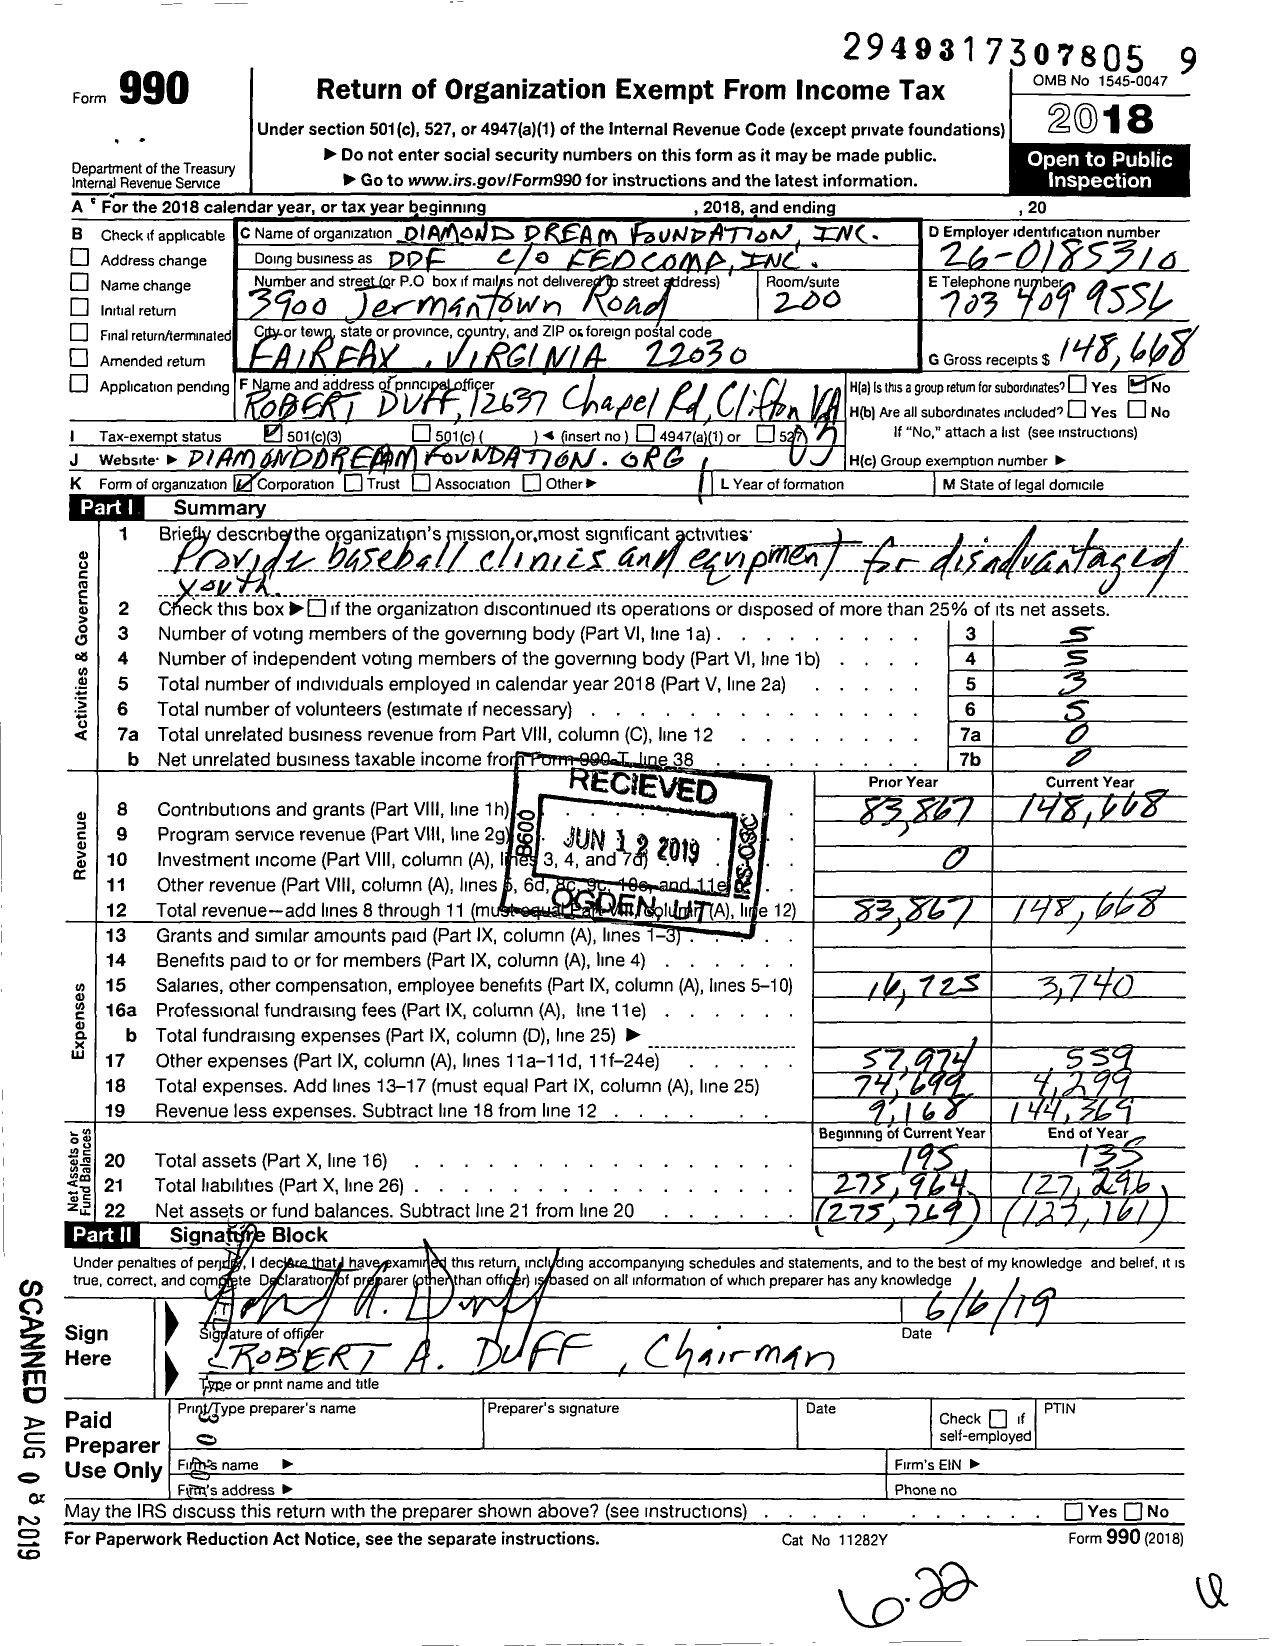 2949317307805 9
Form 990
Return of Organization Exempt From Income Tax
OMB No 1545-0047
2018
Under section 501(c), 527, or 4947(a)(1) of the Internal Revenue Code (except private foundations)
▶ Do not enter social security numbers on this form as it may be made public.
▶ Go to www.irs.gov/Form990 for instructions and the latest information.
Department of the Treasury
Internal Revenue Service
Open to Public
Inspection
A For the 2018 calendar year, or tax year beginning , 2018, and ending , 20
B Check if applicable
Address change
Name change
Initial return
Final return/terminated
Amended return
Application pending
C Name of organization DIAMOND DREAM FOUNDATION, INC.
Doing business as DDF C/O FEDCOMP, INC.
Number and street (or P.O box if mail is not delivered to street address) Room/suite
3900 Jermantown Road 200
City or town, state or province, country, and ZIP or foreign postal code
FAIRFAX, VIRGINIA 22030
D Employer identification number
26-0185310
E Telephone number
703 409 9556
G Gross receipts $ 148,668
F Name and address of principal officer
ROBERT DUFF, 12637 Chapel Rd, Clifton VA
H(a) Is this a group return for subordinates? Yes No
H(b) Are all subordinates included? Yes No
If "No," attach a list (see instructions)
H(c) Group exemption number ▶
I Tax-exempt status 501(c)(3) 501(c) ( ) ◀ (insert no) 4947(a)(1) or 527
J Website ▶ DIAMONDDREAMFOUNDATION.ORG
K Form of organization Corporation Trust Association Other ▶ L Year of formation M State of legal domicile
Part I Summary
Activities & Governance
1 Briefly describe the organization's mission or most significant activities:
Provide baseball clinics and equipment for disadvantaged
youth.
2 Check this box ▶ if the organization discontinued its operations or disposed of more than 25% of its net assets.
3 Number of voting members of the governing body (Part VI, line 1a) 3 5
4 Number of independent voting members of the governing body (Part VI, line 1b) 4 5
5 Total number of individuals employed in calendar year 2018 (Part V, line 2a) 5 3
6 Total number of volunteers (estimate if necessary) 6 5
7a Total unrelated business revenue from Part VIII, column (C), line 12 7a 0
b Net unrelated business taxable income from Form 990-T, line 38 7b 0
Revenue
Prior Year Current Year
8 Contributions and grants (Part VIII, line 1h) 83,867 148,668
9 Program service revenue (Part VIII, line 2g)
10 Investment income (Part VIII, column (A), lines 3, 4, and 7d) 0
11 Other revenue (Part VIII, column (A), lines 5, 6d, 8c, 9c, 10c, and 11e)
12 Total revenue—add lines 8 through 11 (must equal Part VIII, column (A), line 12) 83,867 148,668
RECIEVED
B600
JUN 12 2019
IRS-OSC
OGDEN, UT
Expenses
13 Grants and similar amounts paid (Part IX, column (A), lines 1–3)
14 Benefits paid to or for members (Part IX, column (A), line 4)
15 Salaries, other compensation, employee benefits (Part IX, column (A), lines 5–10) 16,725 3,740
16a Professional fundraising fees (Part IX, column (A), line 11e)
b Total fundraising expenses (Part IX, column (D), line 25) ▶
17 Other expenses (Part IX, column (A), lines 11a–11d, 11f–24e) 57,974 559
18 Total expenses. Add lines 13–17 (must equal Part IX, column (A), line 25) 74,699 4,299
19 Revenue less expenses. Subtract line 18 from line 12 9,168 144,369
Net Assets or
Fund Balances
Beginning of Current Year End of Year
20 Total assets (Part X, line 16) 195 135
21 Total liabilities (Part X, line 26) 275,964 127,296
22 Net assets or fund balances. Subtract line 21 from line 20 (275,769) (127,161)
Part II Signature Block
Under penalties of perjury, I declare that I have examined this return, including accompanying schedules and statements, and to the best of my knowledge and belief, it is
true, correct, and complete Declaration of preparer (other than officer) is based on all information of which preparer has any knowledge
Sign
Here
Robert A. Duff 6/6/19
Signature of officer Date
ROBERT A. DUFF, Chairman
Type or print name and title
Paid
Preparer
Use Only
Print/Type preparer's name Preparer's signature Date Check if
self-employed PTIN
Firm's name ▶ Firm's EIN ▶
Firm's address ▶ Phone no
May the IRS discuss this return with the preparer shown above? (see instructions) Yes No
For Paperwork Reduction Act Notice, see the separate instructions. Cat No 11282Y Form 990 (2018)
SCANNED AUG 08 2019
6.22